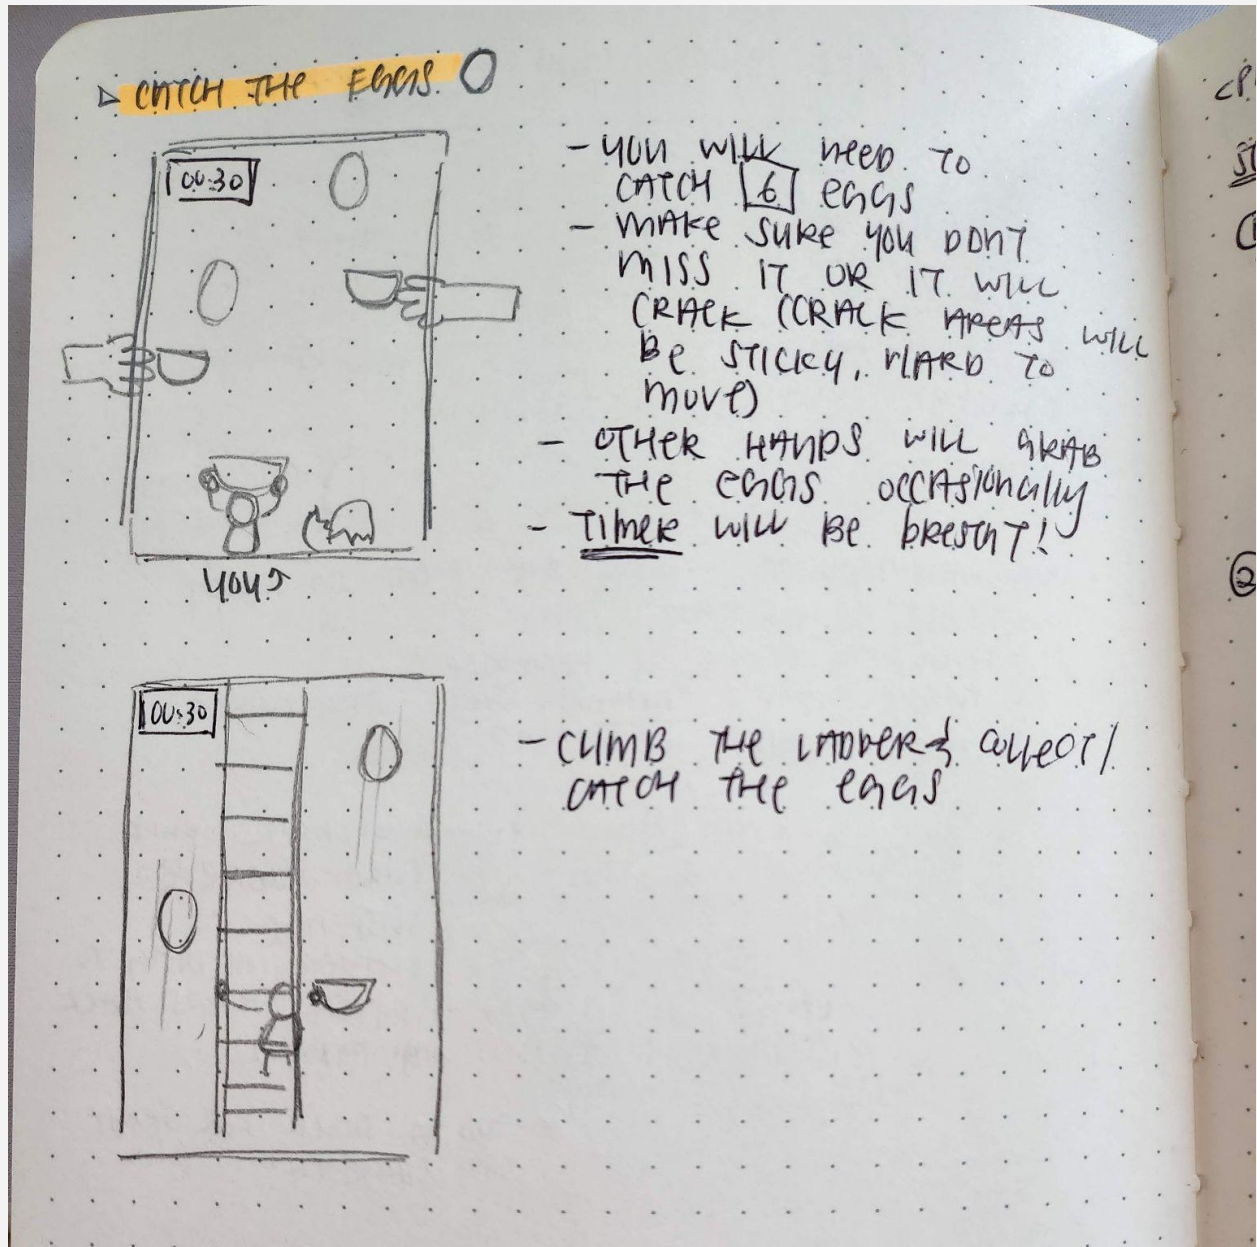 CATCH THE EGGS
00:30
- YOU WILL NEED TO
CATCH 6 EGGS
- MAKE SURE YOU DON'T
MISS IT OR IT WILL
CRACK (CRACK AREAS WILL
BE STICKY, HARD TO
MOVE)
- OTHER HANDS WILL GRAB
THE EGGS OCCASIONALLY
- TIMER WILL BE PRESENT!
YOU
00:30
- CLIMB THE LADDER & COLLECT/
CATCH THE EGGS
②